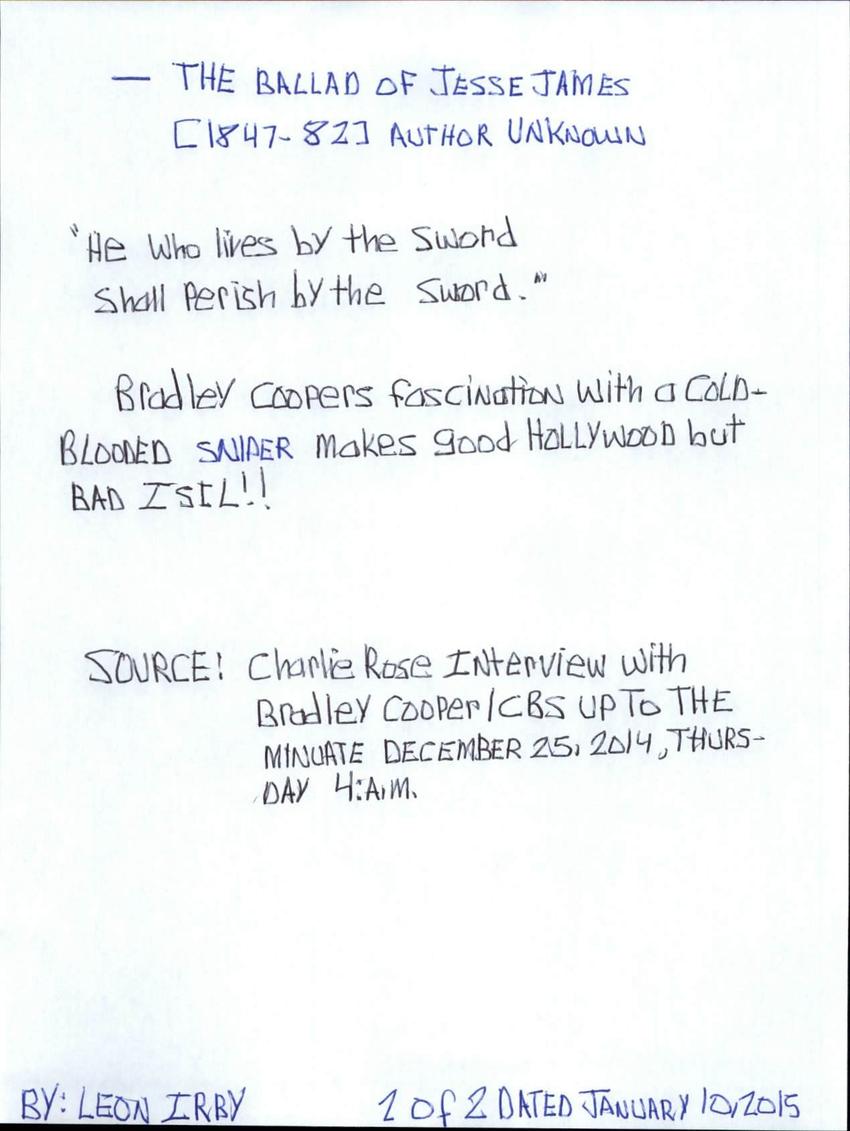 — THE BALLAD OF JESSE JAMES
[1847-82] AUTHOR UNKNOWN
"He who lives by the Sword
Shall Perish by the Sword."
Bradley Coopers fascination with a COLD-
BLOODED SNIPER makes good HOLLYWOOD but
BAD ISIL!!
SOURCE: Charlie Rose Interview with
Bradley Cooper/CBS UP TO THE
MINUATE DECEMBER 25, 2014, THURS-
DAY 4:A.M.
BY: LEON IRBY 2 of 2 DATED JANUARY 10, 2015